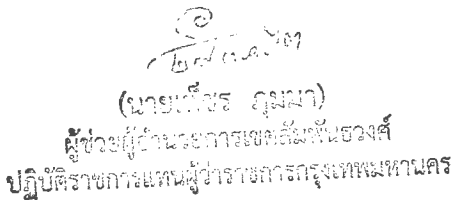 (นายเพ็ชร ภุมมา)
ผู้ช่วยผู้อำนวยการเขตสัมพันธวงศ์
ปฏิบัติราชการแทนผู้ว่าราชการกรุงเทพมหานคร